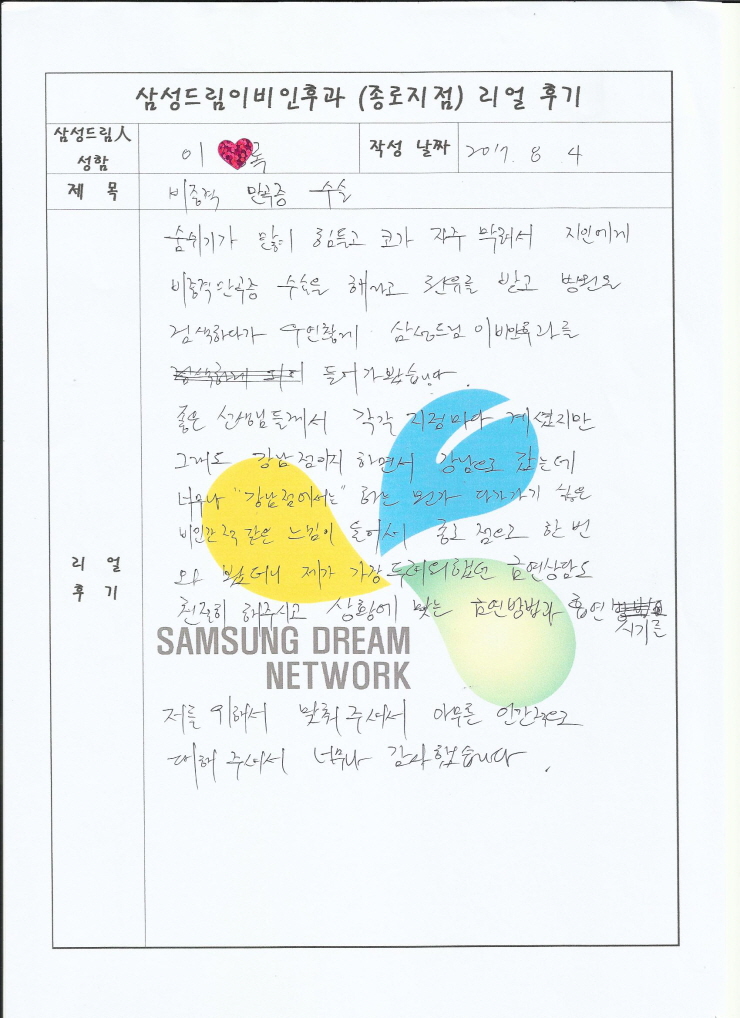 삼성드림이비인후과 (종로지점) 리얼 후기
삼성드림人
성함
이 록
작성 날짜
2017. 8 4
제 목
비중격 만곡증 수술
리 얼
후 기
숨쉬기가 많이 힘들고 코가 자주 막혀서 지인에게
비중격만곡증 수술을 하라고 권유를 받고 병원을
검색하다가 우연찮게 삼성드림이비인후과를
들어가봤습니다.
좋은 선생님들께서 각각 지점마다 계셨지만
그래도 강남점이지 하면서 강남으로 갔는데
너무나 "강남점에서는" 하는 뭔가 다가가기 싫은
비인간적 같은 느낌이 들어서 종로점으로 한번
와 봤더니 제가 가장 두려워했던 금연상담도
친절히 해주시고 상황에 맞는 금연방법과 흡연
시기를
SAMSUNG DREAM
NETWORK
저를 위해서 맞춰 주셔서 아무튼 인간적으로
대해 주셔서 너무나 감사했습니다.